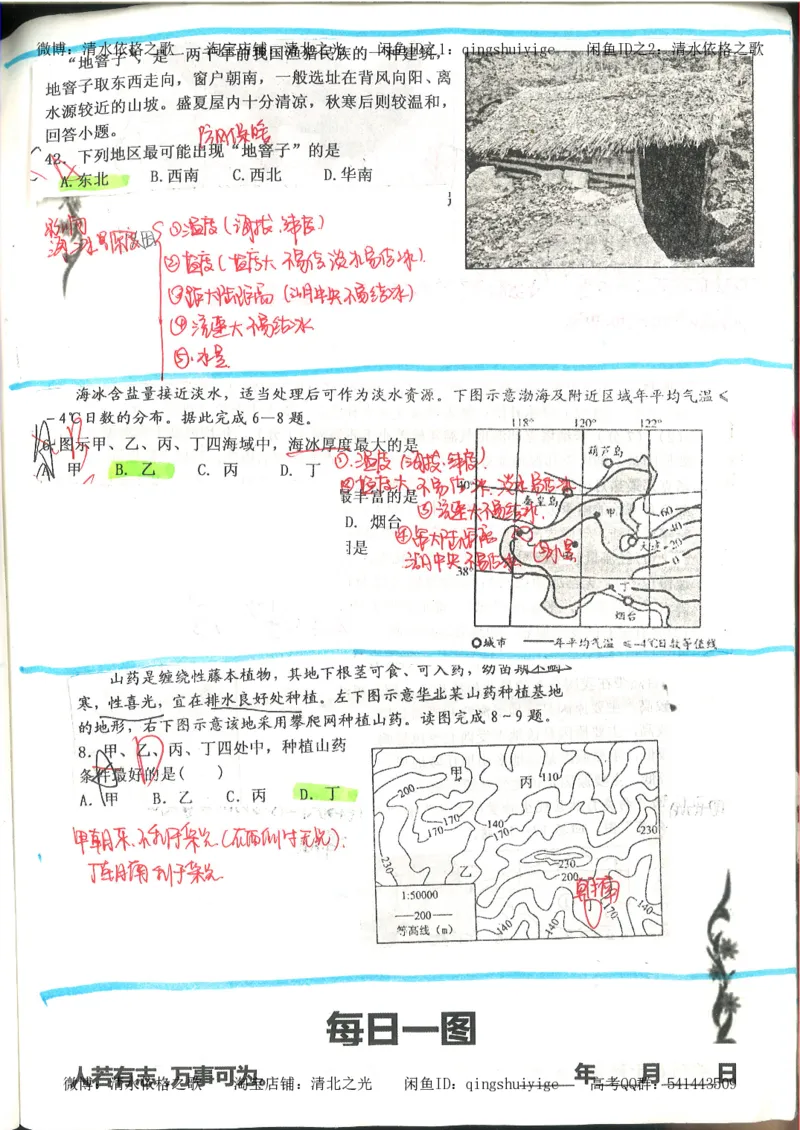 微博：清水依格之歌 淘宝店铺：清北之光 闲鱼ID之1：qingshuiyige 闲鱼ID之2：清水依格之歌
“地窨子”，是一两千年前我国渔猎民族的一种建筑，
地窨子取东西走向，窗户朝南，一般选址在背风向阳、离
水源较近的山坡。盛夏屋内十分清凉，秋寒后则较温和，
回答小题。
42. 下列地区最可能出现“地窨子”的是
A.东北 B.西南 C.西北 D.华南
①温度（海拔、纬度）
②盐度（盐度大不易结冰 淡水易结冰）.
③距大陆距离（湖中央不易结冰）
④流速大不易结冰
⑤.水量.
海冰含盐量接近淡水，适当处理后可作为淡水资源。下图示意渤海及附近区域年平均气温≤
-4℃日数的分布。据此完成6—8题。
6.图示甲、乙、丙、丁四海域中，海冰厚度最大的是
A. 甲 B. 乙 C. 丙 D. 丁
最丰富的是
D. 烟台
①.温度（海拔.纬度）.
②盐度大 不易结冰.淡水易结冰
③流速大不易结冰.
④距大陆距离
湖中央不易结冰
⑤水量
118° 120° 122°
葫芦岛
秦皇岛
甲
60
40
20
0
38°
丁
烟台
城市 年平均气温 ≤-4℃日数等值线
山药是缠绕性藤本植物，其地下根茎可食、可入药，幼苗期不耐
寒，性喜光，宜在排水良好处种植。左下图示意华北某山药种植基地
的地形，右下图示意该地采用攀爬网种植山药。读图完成8～9题。
8. 甲、乙、丙、丁四处中，种植山药
条件最好的是( )
A. 甲 B. 乙 C. 丙 D. 丁
D
甲朝东.不利于采光.（在西侧时无光）；
丁在朝南利于采光.
甲
丙
110
200
170
170
140
170
230
230
乙
230
200
朝南
丁
170
140
140
140
1:50000
200
等高线（m）
每日一图
人若有志，万事可为。 年 月 日
微博：清水依格之歌 淘宝店铺：清北之光 闲鱼ID：qingshuiyige 高考QQ群：541443509